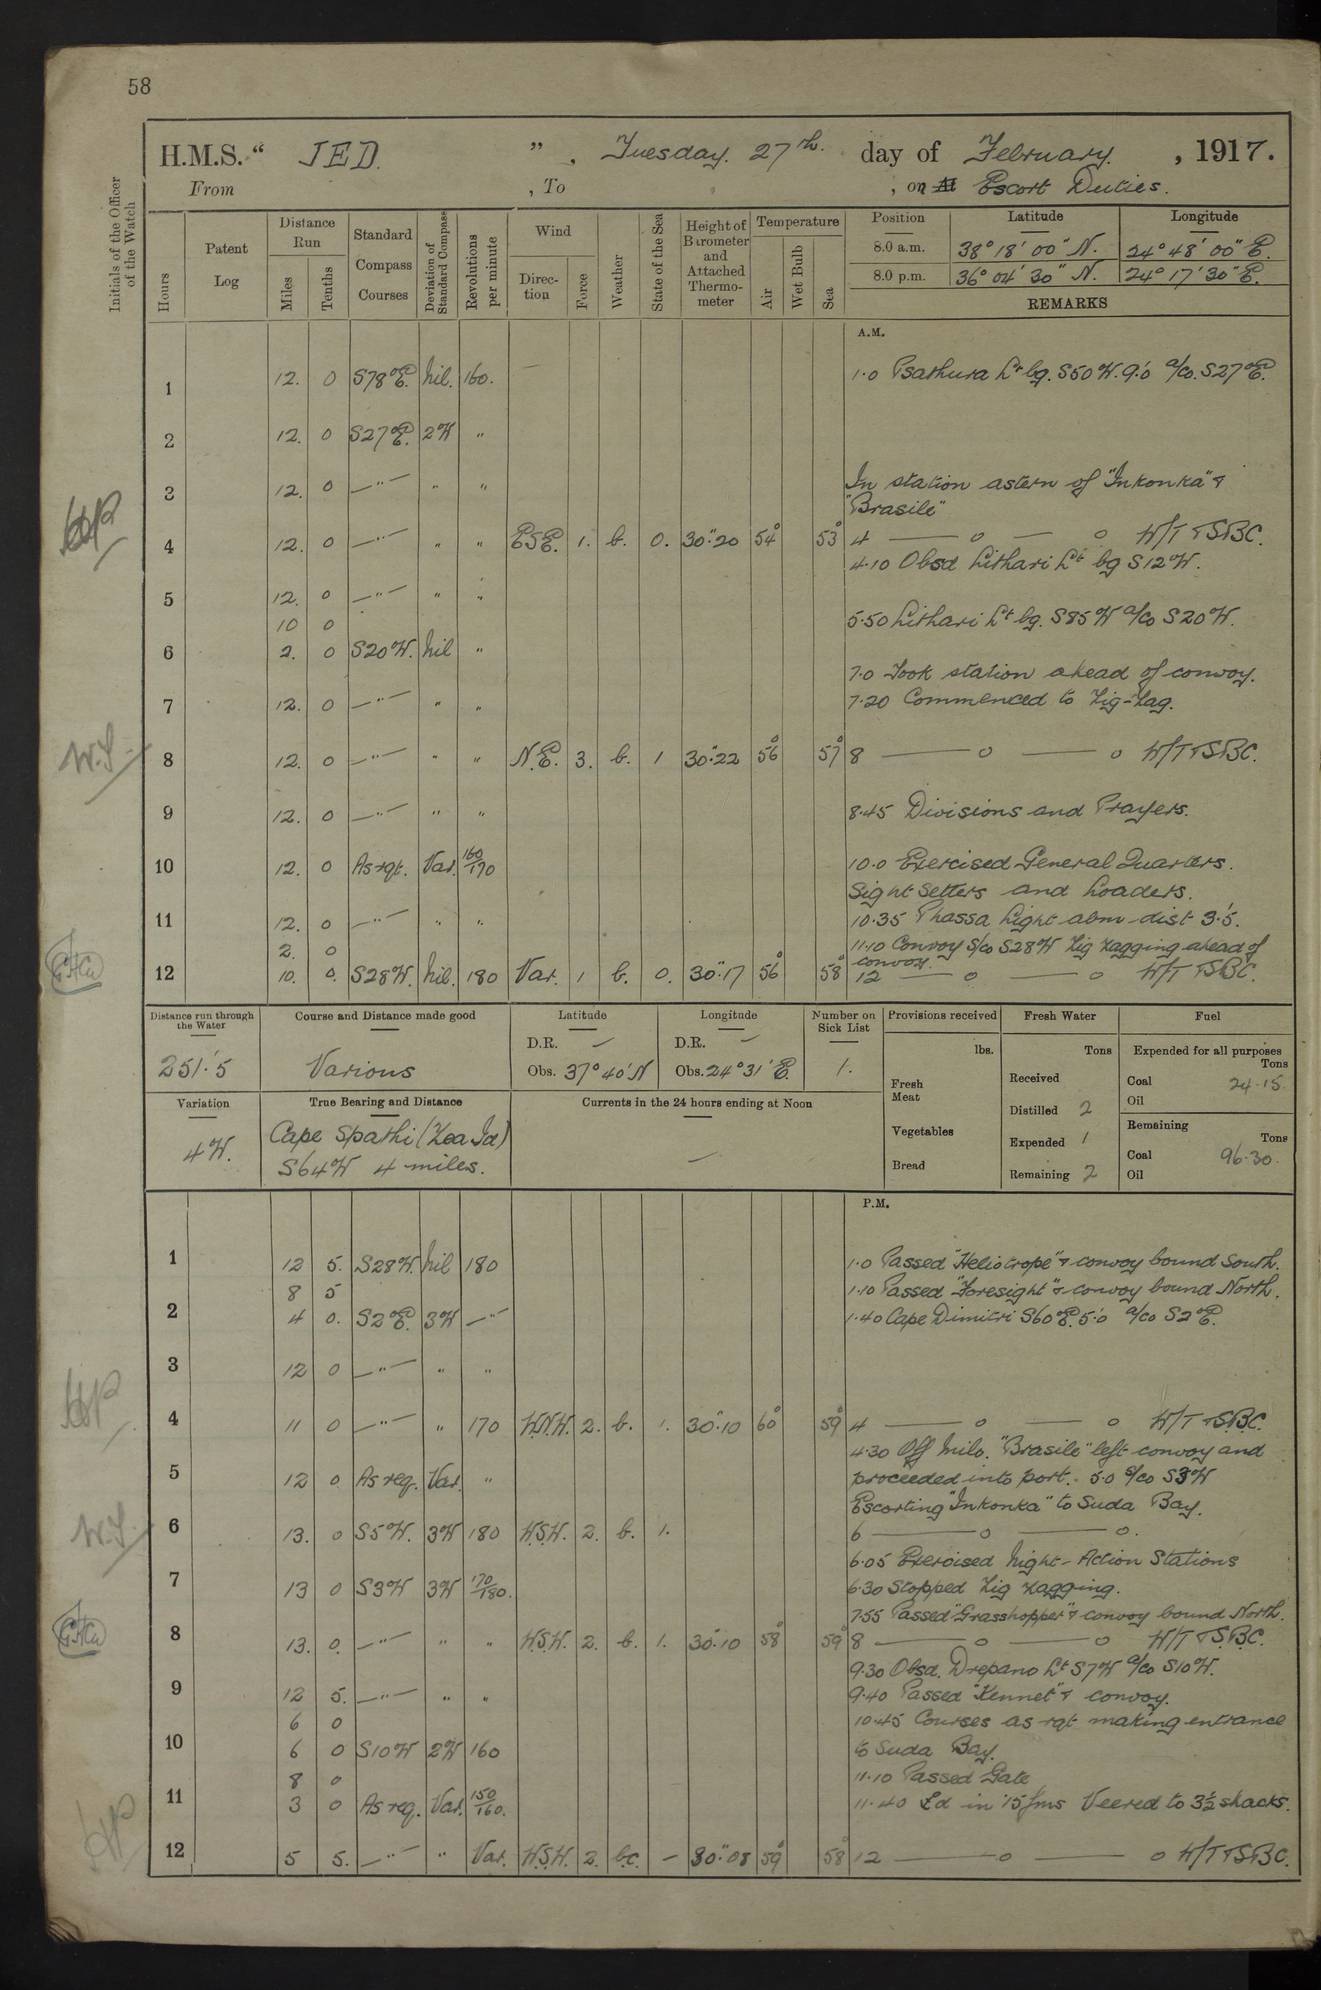 58
H.M.S. "JED", Tuesday. 27th. day of February, 1917.
From , To , on At Escort Duties.
Initials of the Officer of the Watch
Hours
Patent Log
Distance Run
Miles
Tenths
Standard Compass Courses
Deviation of Standard Compass
Revolutions per minute
Wind
Direction
Force
Weather
State of the Sea
Height of Barometer and Attached Thermometer
Temperature
Air
Wet Bulb
Sea
Position Latitude Longitude
8.0 a.m. 38° 18' 00" N. 24° 48' 00" E.
8.0 p.m. 36° 04' 30" N. 24° 17' 30" E.
REMARKS
A.M.
1 12. 0 S78°E. Nil. 160. — 1.0 Psathura Lt bg. S50W. 9'.0 a/co. S27°E.
2 12. 0 S27°E. 2W "
3 12. 0 —"— " " In station astern of "Inkonka" &
"Brasile"
4 12. 0 —"— " " ESE. 1. b. 0. 30".20 54° 53° 4 — o — o W/T & SBC.
4.10 Obsd Lithari Lt bg S12°W.
5 12. 0 —"— " "
10 0 5.50 Lithari Lt bg. S85W a/co S20°W.
6 2. 0 S20°W. Nil "
7.0 Took station ahead of convoy.
7 12. 0 —"— " " 7.20 Commenced to Zig-Zag.
W.S.
8 12. 0 —"— " " N.E. 3. b. 1 30".22 56° 57° 8 — o — o W/T & SBC.
9 12. 0 —"— " " 8.45 Divisions and Prayers.
10 12. 0 As rqt. Var. 160/170 10.0 Exercised General Quarters.
Sight Setters and Loaders.
11 12. 0 —"— " " 10.35 Phassa Light abm dist 3'.5.
2. 0 11.10 Convoy S/co S28°W Zig zagging ahead of
convoy.
12 10. 0. S28°W. Nil. 180 Var. 1 b. 0. 30".17 56° 58° 12 — o — o W/T & SBC.
Distance run through the Water
251'.5
Course and Distance made good
Various
Latitude
D.R. —
Obs. 37° 40' N
Longitude
D.R. —
Obs. 24° 31' E.
Number on Sick List
1.
Provisions received
lbs.
Fresh Meat
Vegetables
Bread
Fresh Water
Tons
Received
Distilled 2
Expended 1
Remaining 2
Fuel
Expended for all purposes
Tons
Coal 24.15
Oil
Remaining
Tons
Coal 96.30.
Oil
Variation
4°W.
True Bearing and Distance
Cape Spathi (Zea Id)
S64W 4 miles.
Currents in the 24 hours ending at Noon
—
P.M.
1 12 5. S28°W. Nil 180 1.0 Passed "Heliotrope" & convoy bound South.
8 5 1.10 Passed "Foresight" & convoy bound North.
2 4 0. S2°E. 3W —"— 1.40 Cape Dimitri S60°E. 5'.0 a/co S2°E.
3 12 0 —"— " "
4 11 0 —"— " 170 W.N.W. 2. b. 1. 30".10 60° 59° 4 — o — o W/T & S.B.C.
4.30 Off Milo. "Brasile" left convoy and
5 12 0 As req. Var. " proceeded into port. 5.0 a/co S3°W
Escorting "Inkonka" to Suda Bay.
W.S.
6 13. 0 S5°W. 3W 180 W.S.W. 2. b. 1. 6 — o — o.
6.05 Exercised Night-Action Stations
7 13 0 S3°W 3W 170/180. 6.30 Stopped Zig zagging.
7.55 Passed "Grasshopper" & convoy bound North.
8 13. 0. —"— " " W.S.W. 2. b. 1. 30".10 58° 59° 8 — o — o W/T & S.B.C.
9.30 Obsd. Drepano Lt S7W a/co S10°W.
9 12 5. —"— " " 9.40 Passed "Kennet" & convoy.
6 0 10.45 Courses as rqt. making entrance
10 6 0 S10°W 2W 160 to Suda Bay.
8 0 11.10 Passed Gate
11 3 0 As req. Var. 150/160. 11.40 Ed in 15 fms Veered to 3½ shacks.
12 5 5. —"— " Var. W.S.W. 2. bc. — 30".08 59° 58° 12 — o — o W/T & SBC.